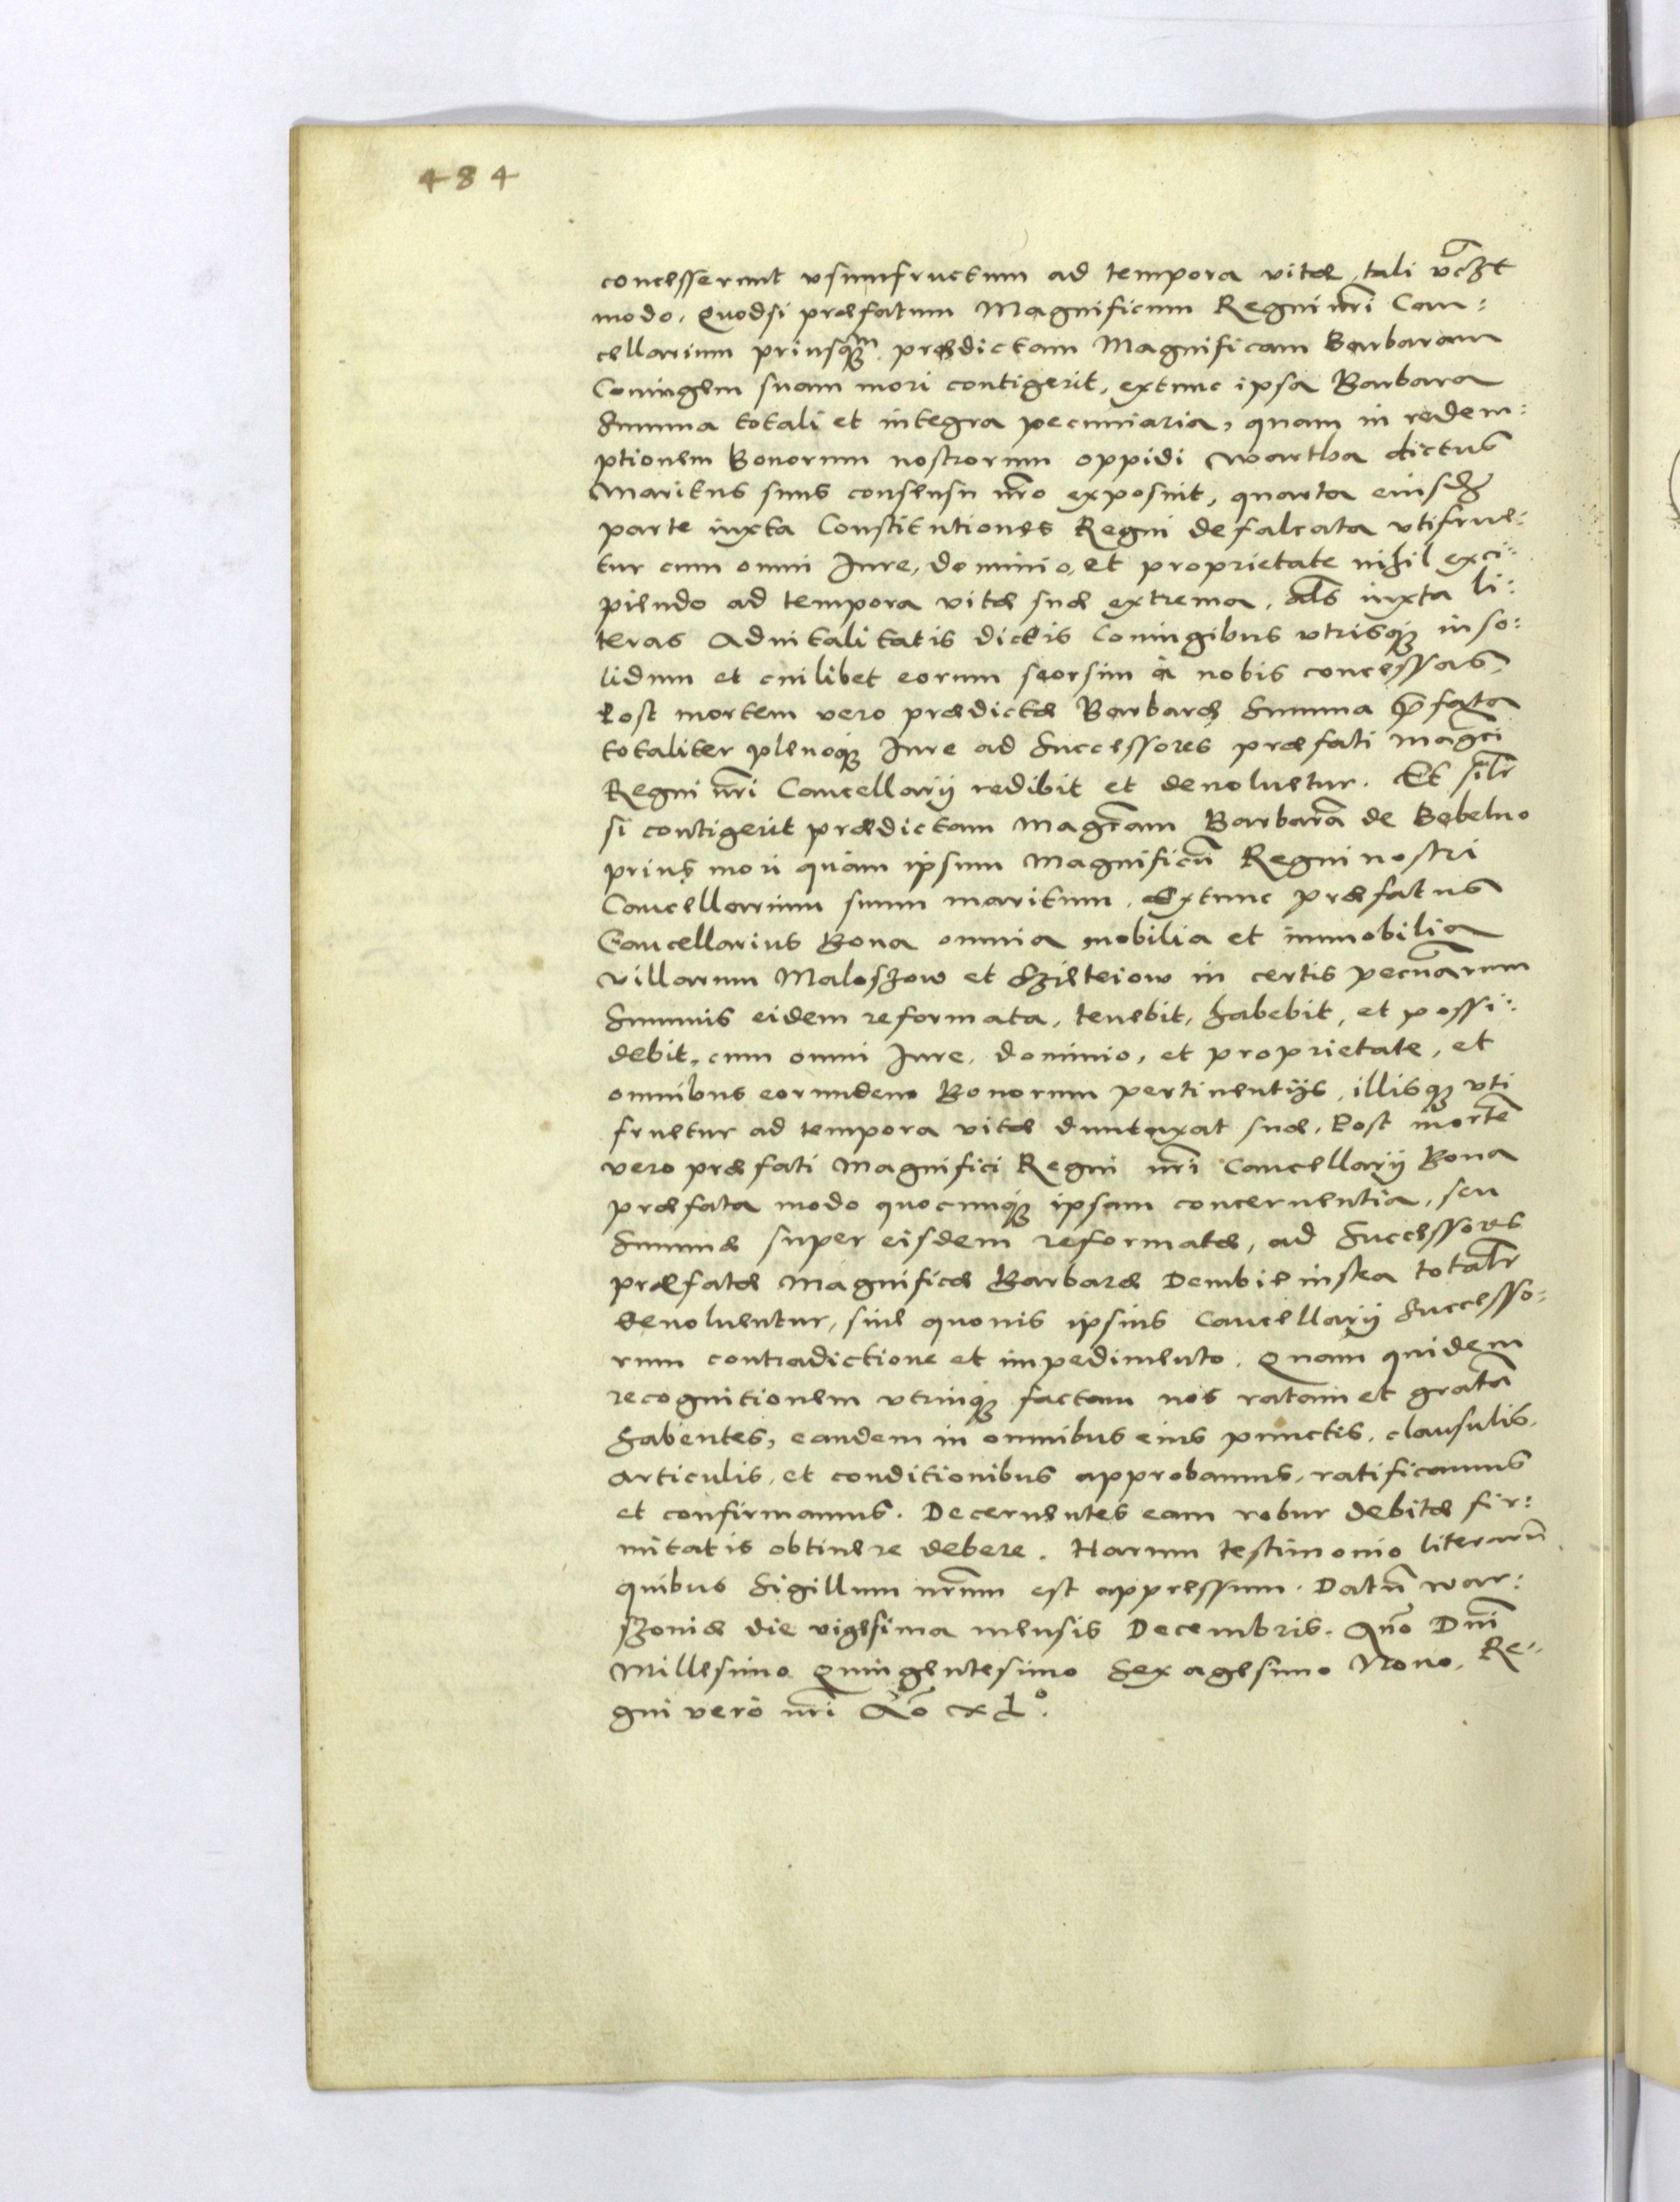 484
concesserunt vsumfructum ad tempora vitæ, tali vcꝫt
modo. Quodsi præfatum Magnificum Regni nr̃i Can:
cellarium priusqꝫm prædictam Magnificam Barbaram
Coniugem suam mori contigerit, extunc ipsa Barbara
Summa totali et integra pecuniaria, quam in redem:
ptionem Bonorum nostrorum oppidi Wartha dictus
Maritus suus consensu nr̃o exposuit, quarta eiusdꝫ
parte iuxta Constitutiones Regni defalcata vtifrue:
tur cum omni Iure, dominio, et proprietate nihil exci:
piendo ad tempora vitæ suæ extrema, als iuxta li:
teras Aduitalitatis dictis Coniugibus vtrisqꝫ inso:
lidum et cuilibet eorum seorsim à nobis concessas,
Post mortem vero prædictæ Barbaræ Summa p̃fata
totaliter plenoqꝫ Iure ad Successores præfati mag̃ci
Regni nr̃i Cancellarij redibit et deuoluetur. Et sil̃r
si contigerit prædictam mag̃cam Barbarã de Bobelno
prius mori quàm ipsum Magnificũ Regni nostri
Cancellarium suum maritum, extunc præfatus
Cancellarius Bona omnia mobilia et immobilia
villarum Maloszow et Szisteiow in certis pecuñarum
Summis eidem reformata, tenebit, habebit, et possi:
debit, cum omni Iure, dominio, et proprietate, et
omnibus eorundem Bonorum pertinentijs, illisqꝫ vti
fruetur ad tempora vitæ duntaxat suæ. Post mortẽ
vero præfati Magnifici Regni nr̃i Cancellarij Bona
præfata modo quocunqꝫ ipsam concernentia, seu
Summæ super eisdem reformatæ, ad Successores
præfatæ Magnificæ Barbaræ Dembienska totalr̃
deuoluentur, sine quouis ipsius Cancellarij Successo:
rum contradictione et impedimento. Quam quidem
recognitionem vtrinqꝫ factam nos ratam et gratã
habentes, eandem in omnibus eius punctis, clausulis,
articulis, et conditionibus approbamus, ratificamus
et confirmamus. Decernentes eam robur debitæ fir:
mitatis obtinere debere. Harum testimonio literarũ
quibus Sigillum nr̃um est appressum. Datũ War:
szouiæ die vigesima mensis Decembris. Año Dñi
Millesimo Quingentesimo Sexagesimo Nono, Re:
gni verò nr̃i Ão xl°.